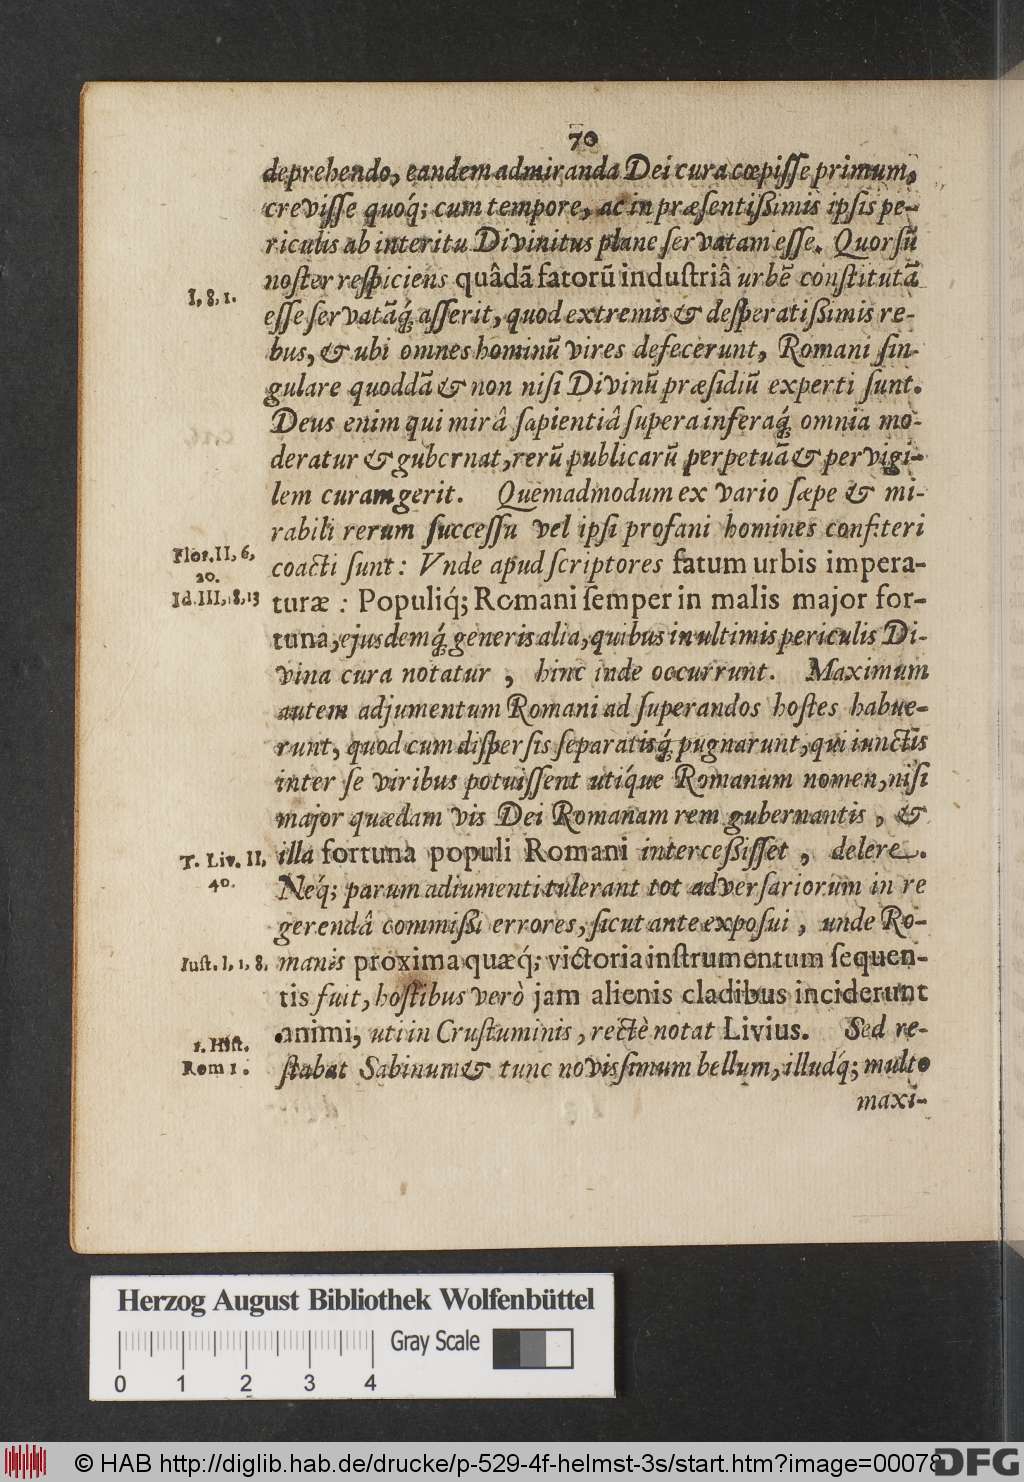 70
deprehendo, eandem admiranda Dei cura cœpiſſe primum,
creviſſe quoq́; cum tempore, ac in præſentißimis ipſis pe-
riculis ab interitu Divinitus plane ſervatam eſſe. Quorſũ
noſter reſpiciens quâdã fatorũ induſtriâ urbẽ conſtitutã
I, 8, 1.
eſſe ſervatãq́; aſſerit, quod extremis & deſperatißimis re-
bus, & ubi omnes hominũ vires defecerunt, Romani ſin-
gulare quoddã & non niſi Divinũ præſidiũ experti ſunt.
Deus enim qui mirâ ſapientiâ ſupera inferaq́; omnia mo-
deratur & gubernat, rerũ publicarũ perpetuã & pervigi-
lem curam gerit. Quemadmodum ex vario ſæpe & mi-
rabili rerum ſucceſſu vel ipſi profani homines confiteri
Flor. II, 6,
20.
coacti ſunt: Vnde apud ſcriptores fatum urbis impera-
Id. III, 18, 13
turæ: Populiq́; Romani ſemper in malis major for-
tuna, ejusdemq́; generis alia, quibus in ultimis periculis Di-
vina cura notatur, hinc inde occurrunt. Maximum
autem adjumentum Romani ad ſuperandos hoſtes habue-
runt, quod cum diſperſis ſeparatisq́; pugnarunt, qui iunctis
inter ſe viribus potuiſſent utiq́ue Romanum nomen, niſi
major quædam vis Dei Romanam rem gubernantis, &
T. Liv. II,
40.
illa fortuna populi Romani interceßiſſet, delere.
Neq́; parum adiumenti tulerant tot adverſariorum in re
gerendâ commißi errores, ſicut ante expoſui, unde Ro-
Iuſt. I, 1, 8,
manis proxima quæq́; victoria inſtrumentum ſequen-
tis fuit, hoſtibus verò jam alienis cladibus inciderunt
animi, uti in Cruſtuminis, rectè notat Livius. Sed re-
1. Hiſt.
Rom 1.
ſtabat Sabinum & tunc noviſſimum bellum, illudq́; multo
maxi-
Herzog August Bibliothek Wolfenbüttel
Gray Scale
0 1 2 3 4
© HAB http://diglib.hab.de/drucke/p-529-4f-helmst-3s/start.htm?image=00078
DFG